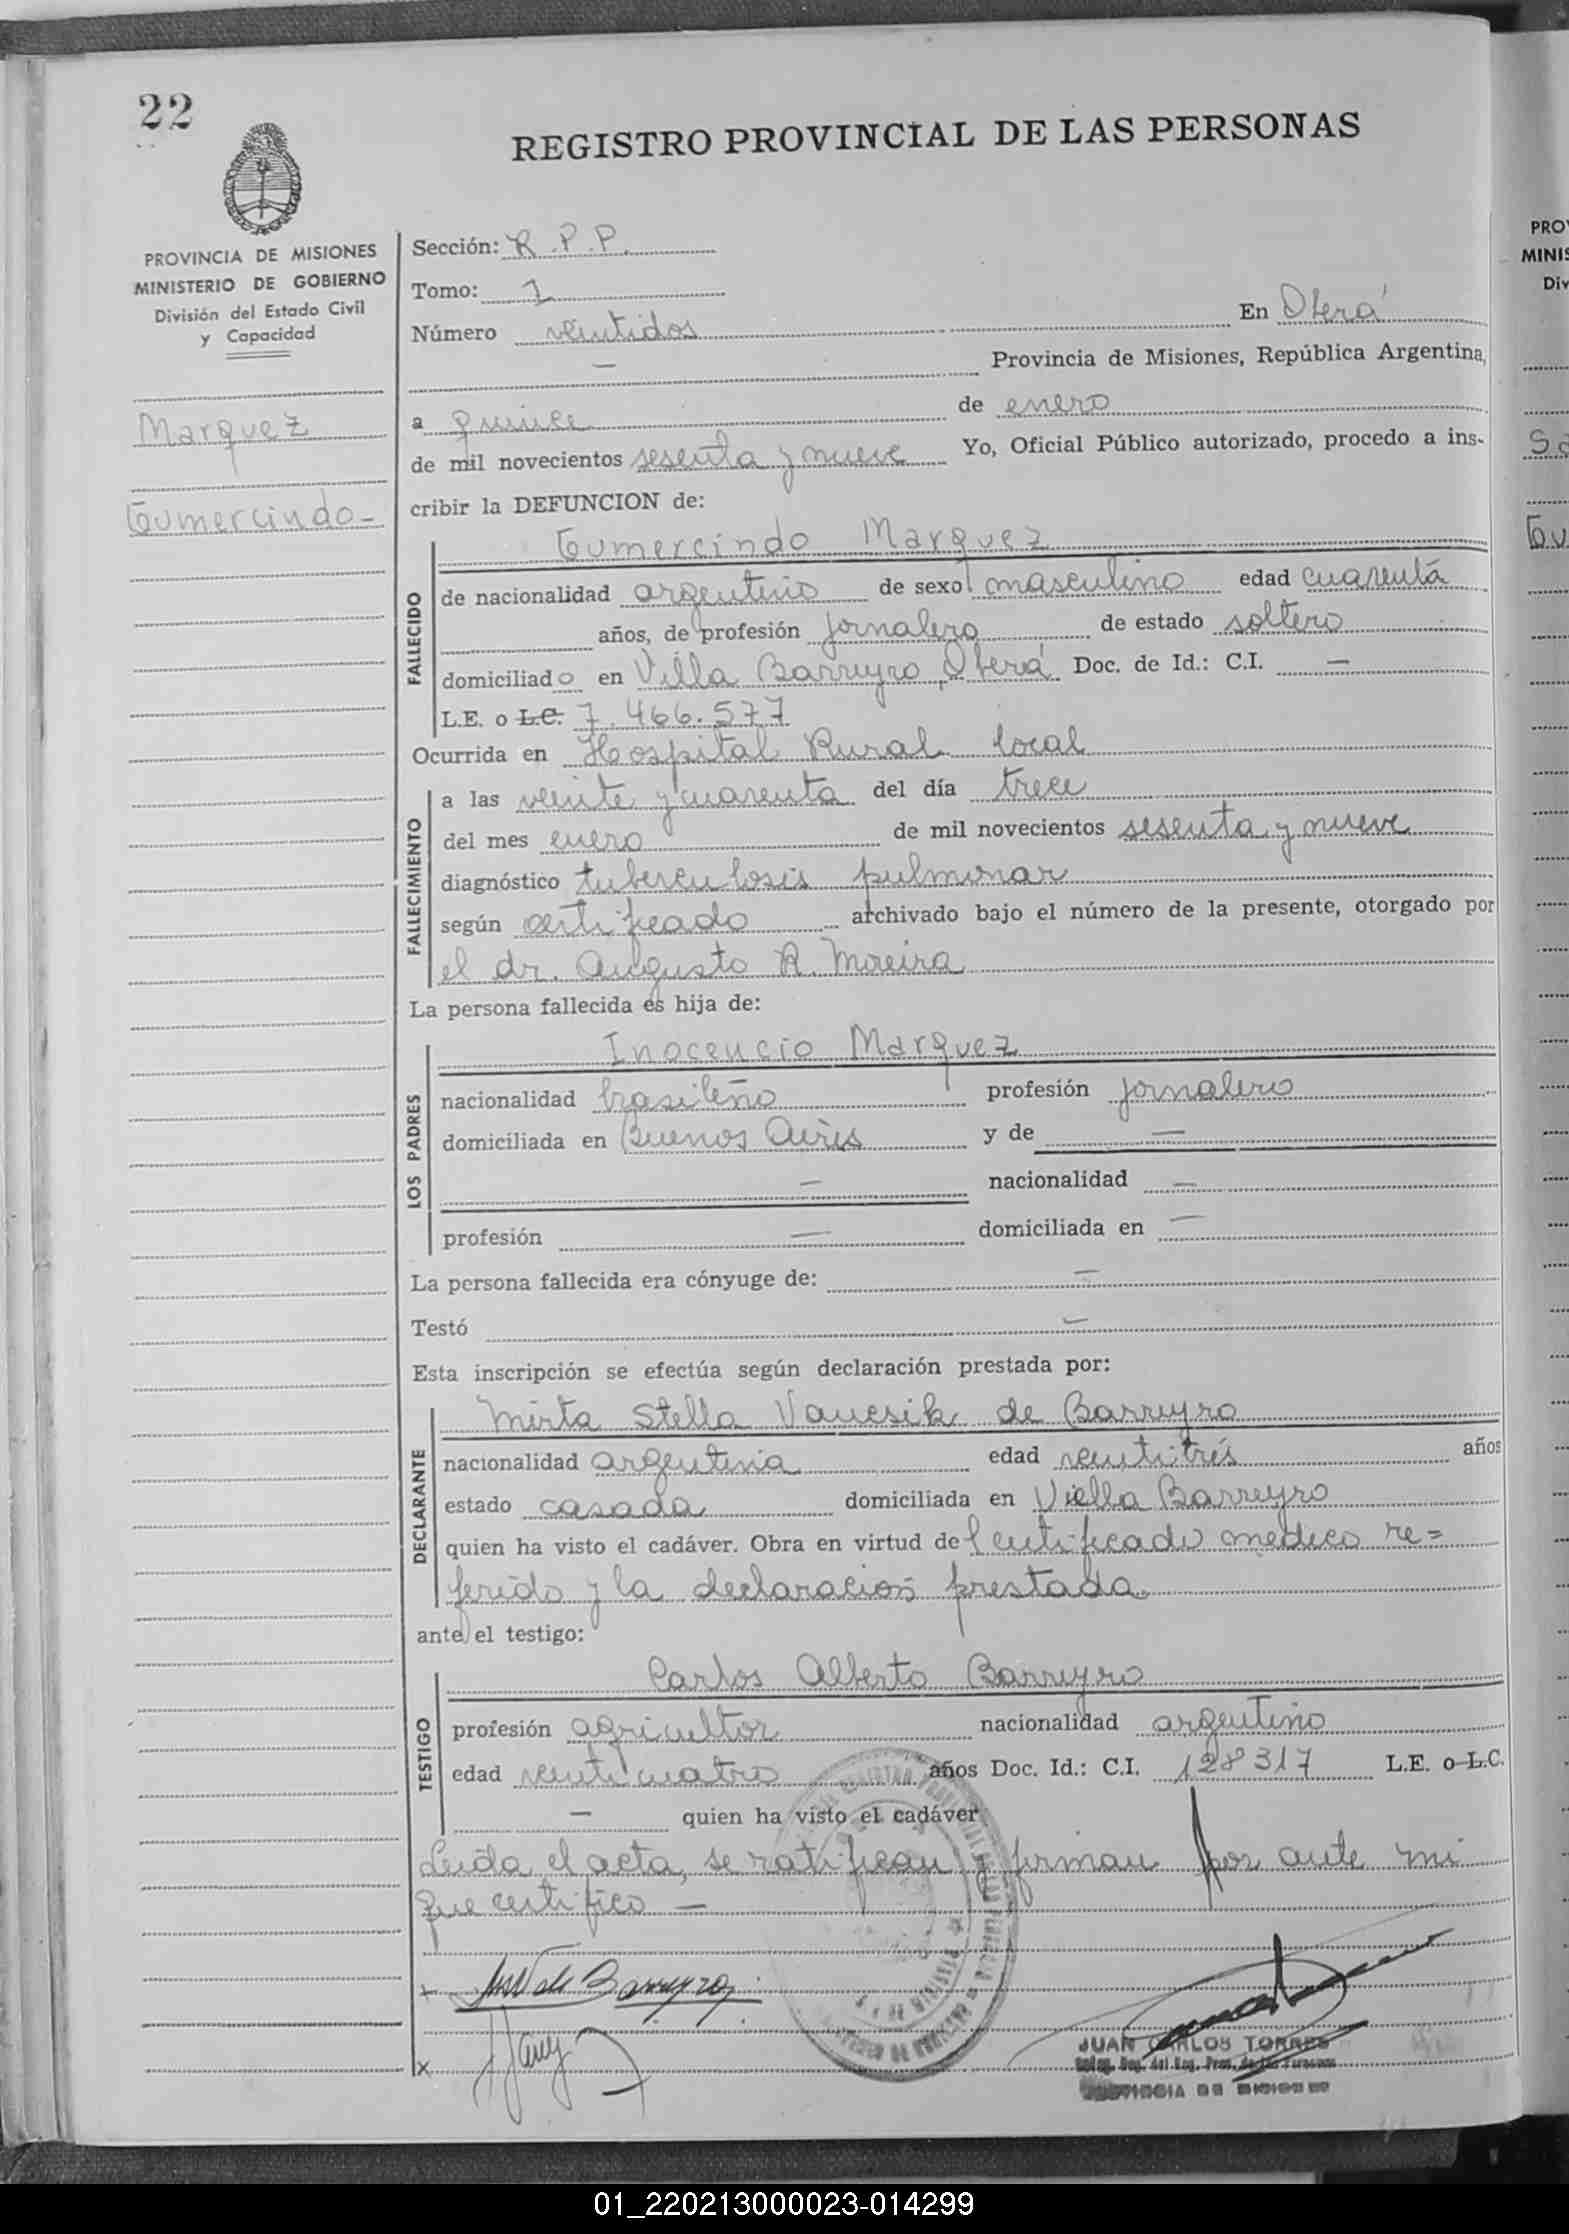 22
REGISTRO PROVINCIAL DE LAS PERSONAS
PROVINCIA DE MISIONES
MINISTERIO DE GOBIERNO
División del Estado Civil
y Capacidad
Marquez
Gumercindo-
Sección: R.P.P.
Tomo: 1
Número veintidos — En Oberá
Provincia de Misiones, República Argentina,
a quince de enero
de mil novecientos sesenta y nueve Yo, Oficial Público autorizado, procedo a ins-
cribir la DEFUNCION de:
FALLECIDO
Gumercindo Marquez
de nacionalidad argentino de sexo masculino edad cuarenta
años, de profesión jornalero de estado soltero
domiciliado en Villa Barreyro, Oberá Doc. de Id.: C.I. —
L.E. o L.C. 7.466.577
Ocurrida en Hospital Rural local
FALLECIMIENTO
a las veinte y cuarenta del día trece
del mes enero de mil novecientos sesenta y nueve
diagnóstico tuberculosis pulmonar
según certificado archivado bajo el número de la presente, otorgado por
el dr. Augusto R. Moreira
La persona fallecida es hija de:
LOS PADRES
Inocencio Marquez
nacionalidad brasileño profesión jornalero
domiciliada en Buenos Aires y de —
— nacionalidad —
profesión — domiciliada en —
La persona fallecida era cónyuge de: —
Testó —
Esta inscripción se efectúa según declaración prestada por:
DECLARANTE
Mirta Stella Vancsik de Barreyro
nacionalidad argentina edad veintitrés años
estado casada domiciliada en Viella Barreyro
quien ha visto el cadáver. Obra en virtud del certificado médico re=
ferido y la declaración prestada
ante el testigo:
TESTIGO
Carlos Alberto Barreyro
profesión agricultor nacionalidad argentino
edad veinticuatro años Doc. Id.: C.I. 128317 L.E. o L.C.
— quien ha visto el cadáver
Leída el acta, se ratifican y firman por ante mi
que certifico —
de Barreyro
x
JUAN CARLOS TORRES
PROVINCIA DE MISIONES
PRO
MINIS
Div
01_220213000023-014299